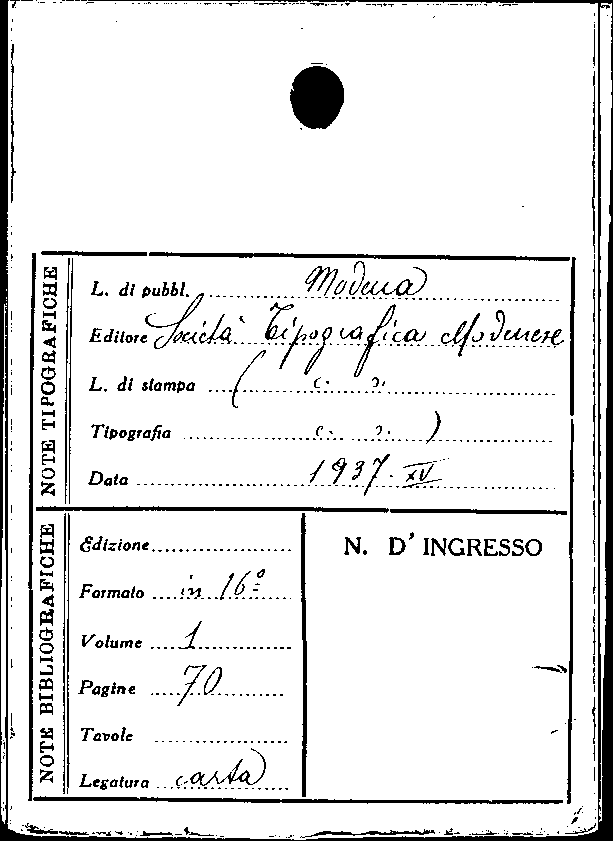 NOTE TIPOGRAFICHE
L. di pubbl. Modena
Editore Società Tipografica Modenese
L. di stampa ( c. s.
Tipografia c. s. )
Data 1937. XV
NOTE BIBLIOGRAFICHE
Edizione
Formato in 16º
Volume 1
Pagine 70
Tavole
Legatura carta
N. D' INGRESSO